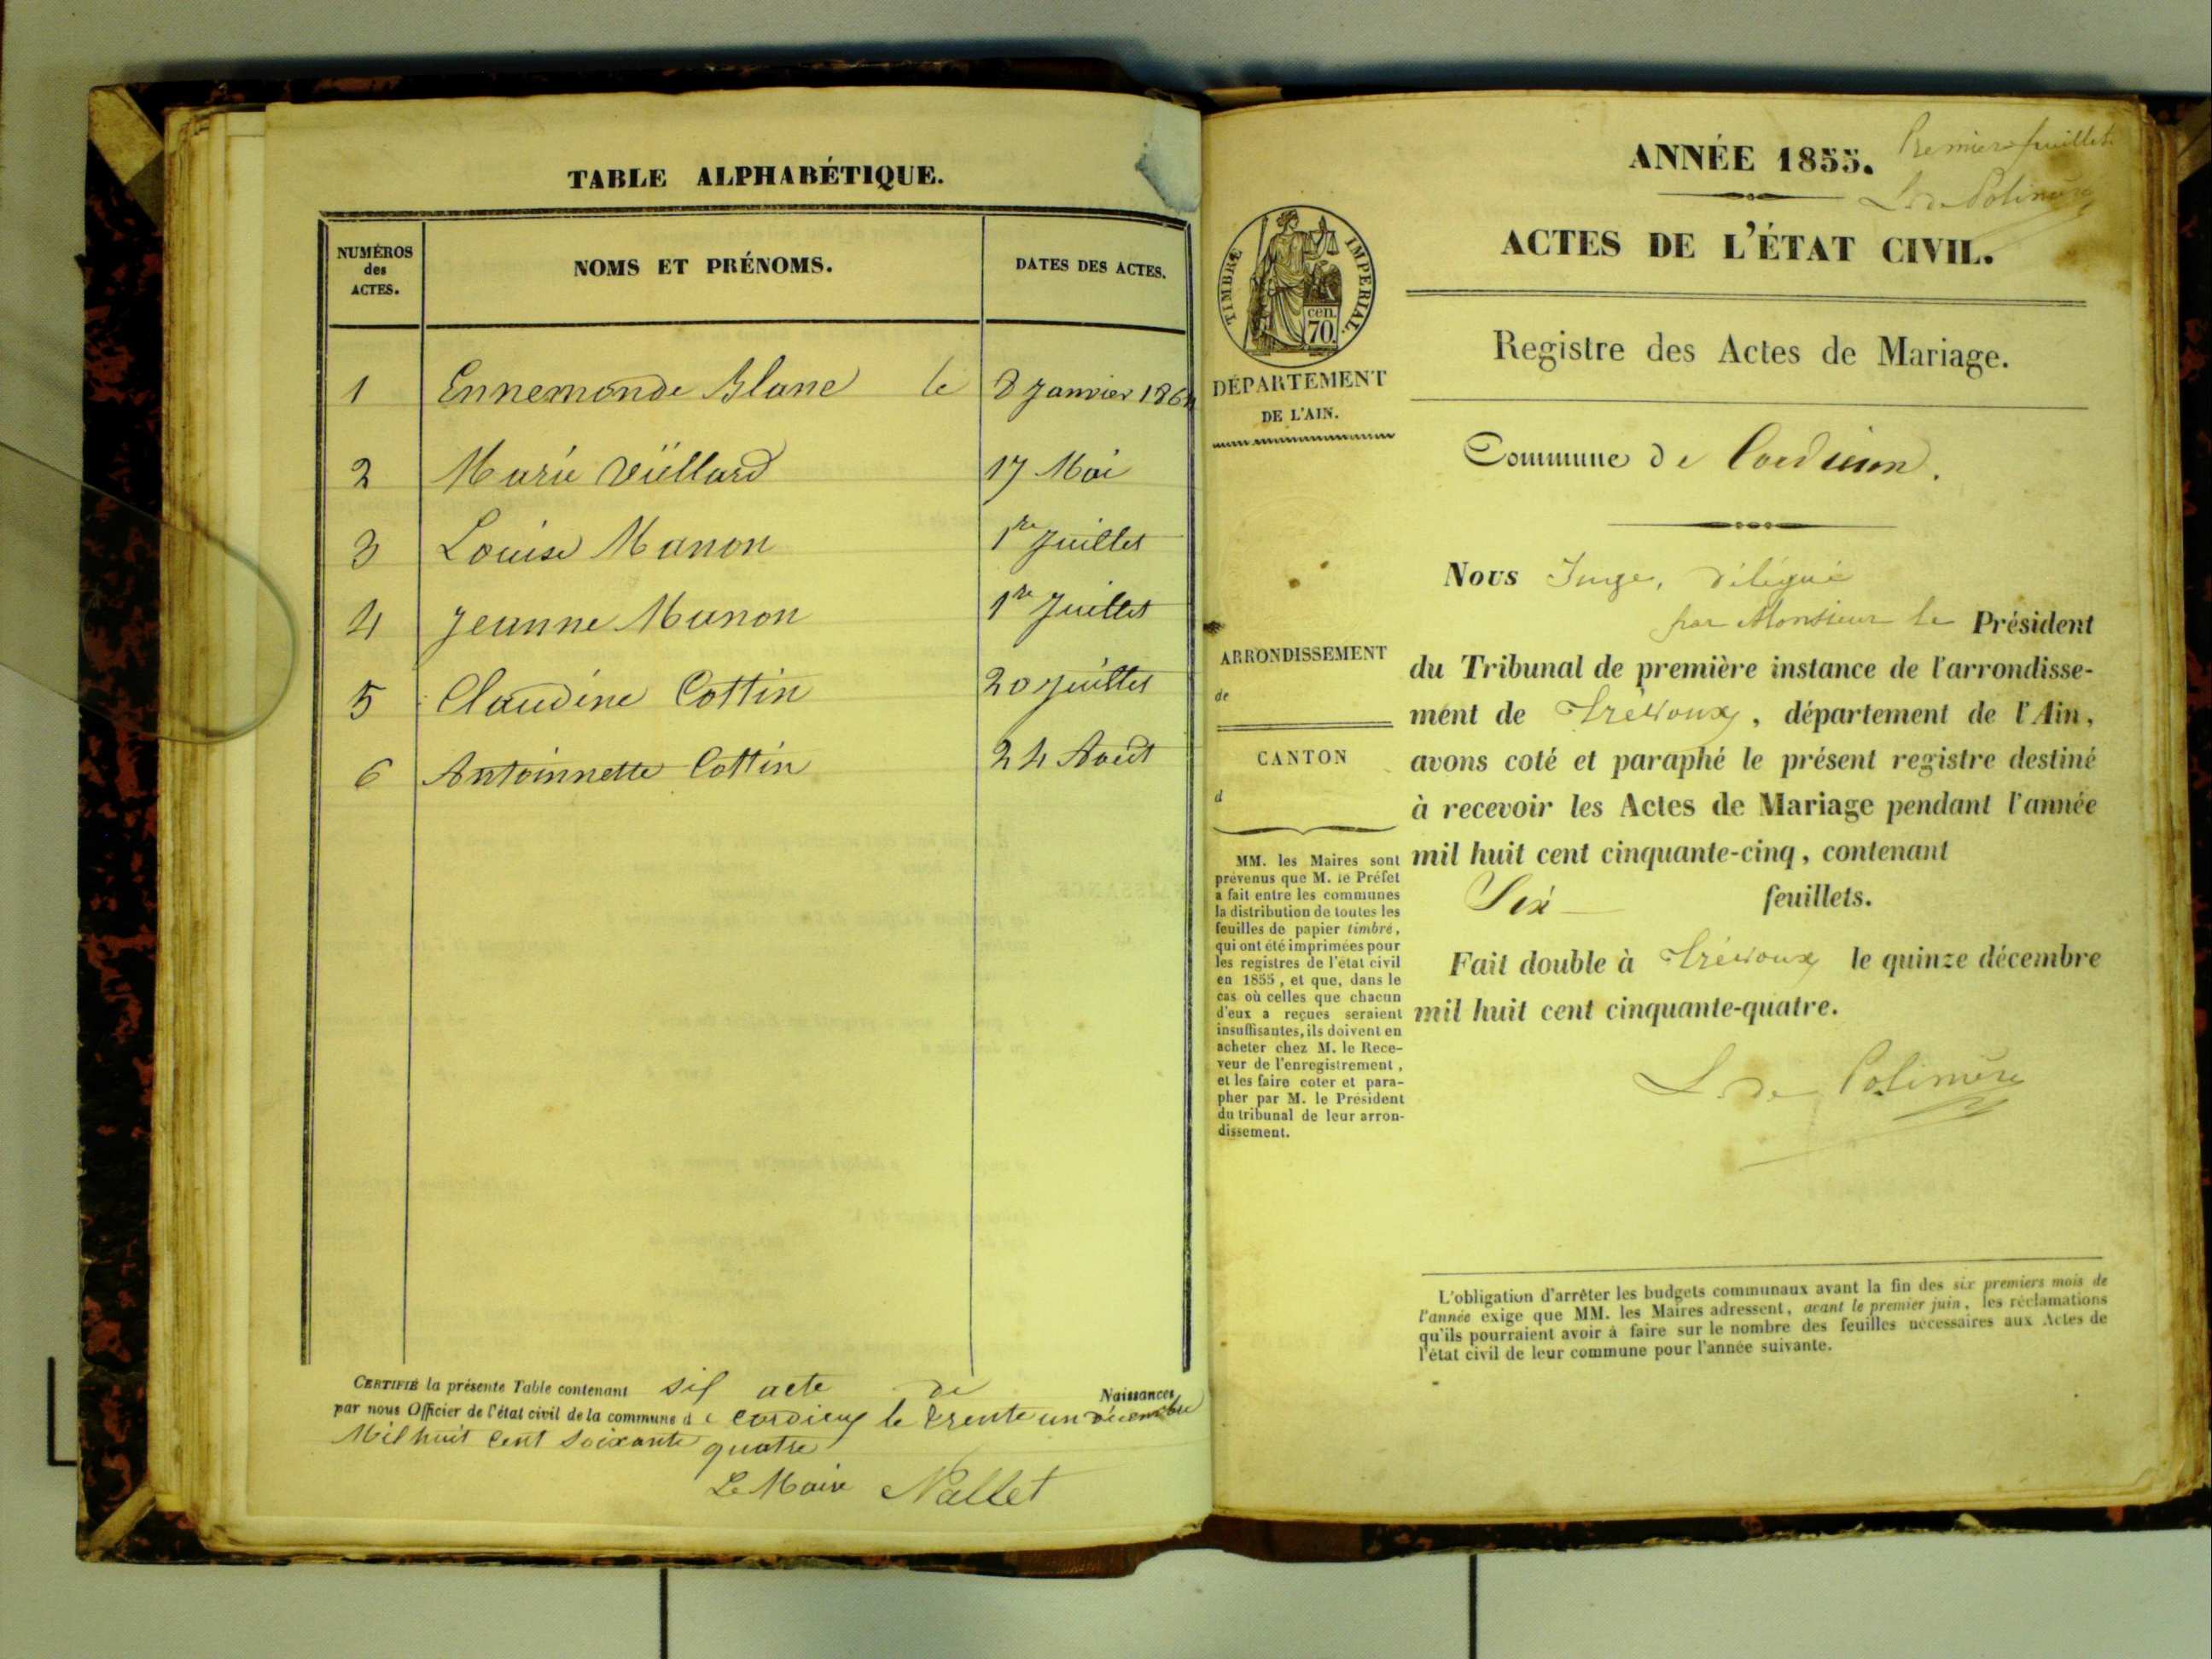 TABLE ALPHABÉTIQUE.
NUMÉROS
des
ACTES.
NOMS ET PRÉNOMS.
DATES DES ACTES.
1 Ennemonde Blanc le 8 Janvier 1864
2 Marie Vüillard 17 Mai
3 Louise Manon 1re Juillet
4 Jeanne Manon 1re Juillet
5 Claudine Cottin 20 Juillet
6 Antoinnette Cottin 24 Août
CERTIFIÉ la présente Table contenant six acte de Naissances
par nous Officier de l'état civil de la commune de Cordieux le trente un décembre
Mil huit Cent Soixante quatre
Le Maire Nallet
ANNÉE 1855.
Premier feuillet.
L. de Polinière
ACTES DE L'ÉTAT CIVIL.
Registre des Actes de Mariage.
TIMBRE IMPERIAL.
cen.
70
DÉPARTEMENT
DE L'AIN.
Commune de Cordieux.
Nous Juge, délégué
par Monsieur le Président
du Tribunal de première instance de l'arrondisse-
ment de Trévoux, département de l'Ain,
avons coté et paraphé le présent registre destiné
à recevoir les Actes de Mariage pendant l'année
mil huit cent cinquante-cinq, contenant
Six feuillets.
Fait double à Trévoux le quinze décembre
mil huit cent cinquante-quatre.
L. de Polinière
ARRONDISSEMENT
de
CANTON
d
MM. les Maires sont
prévenus que M. le Préfet
a fait entre les communes
la distribution de toutes les
feuilles de papier timbré,
qui ont été imprimées pour
les registres de l'état civil
en 1855, et que, dans le
cas où celles que chacun
d'eux a reçues seraient
insuffisantes, ils doivent en
acheter chez M. le Rece-
veur de l'enregistrement,
et les faire coter et para-
pher par M. le Président
du tribunal de leur arron-
dissement.
L'obligation d'arrêter les budgets communaux avant la fin des six premiers mois de
l'année exige que MM. les Maires adressent, avant le premier juin, les réclamations
qu'ils pourraient avoir à faire sur le nombre des feuilles nécessaires aux Actes de
l'état civil de leur commune pour l'année suivante.